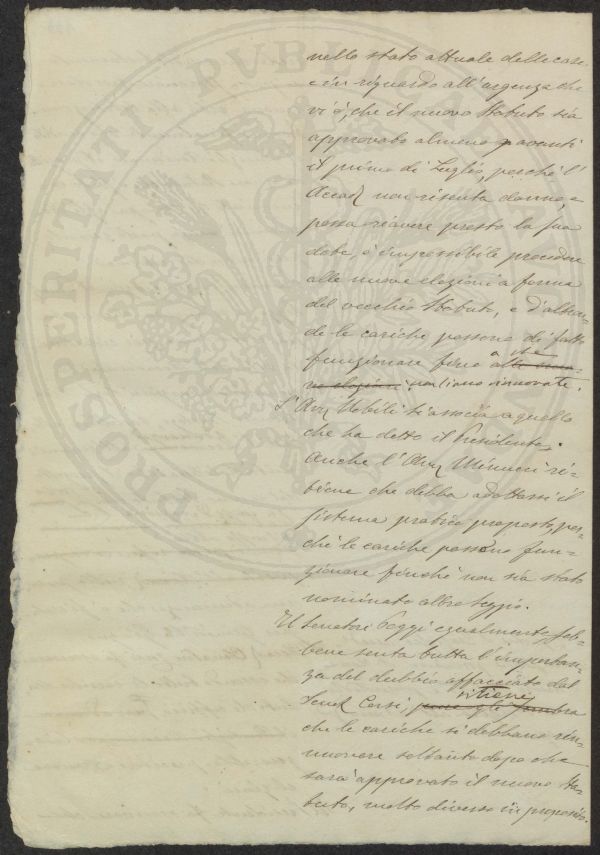 nello stato attuale delle cose
e in riguardo all'urgenza che
vi è, che il nuovo Statuto sia
approvato almeno avanti
il primo di Luglio, perché l'
Accad. non risenta danno, e
possa riavere presto la sua
dote, è impossibile procedere
alle nuove elezioni a forma
del vecchio Statuto, e d'altron-
de le cariche possono di fatto
funzionare fino a che
alle nuo-
ve elezioni non siano rinnovate.
L'Avv. Nobili si associa a quello
che ha detto il Presidente.
Anche l'Avv. Minucci ri-
tiene che debba adottarsi il
sistema pratico proposto, per-
ché le cariche possono fun-
zionare finché non sia stato
nominato altro seggio.
Il Senatore Poggi egualmente, seb-
bene senta tutta l'importan-
za del dubbio affacciato dal
Corsi, ritiene
pare gli sembra
che le cariche si debbano rin-
nuovare soltanto dopo che
sarà approvato il nuovo Sta-
tuto, molto diverso in proposito.
PROSPERITATI PVBLICAE AVGENDAE